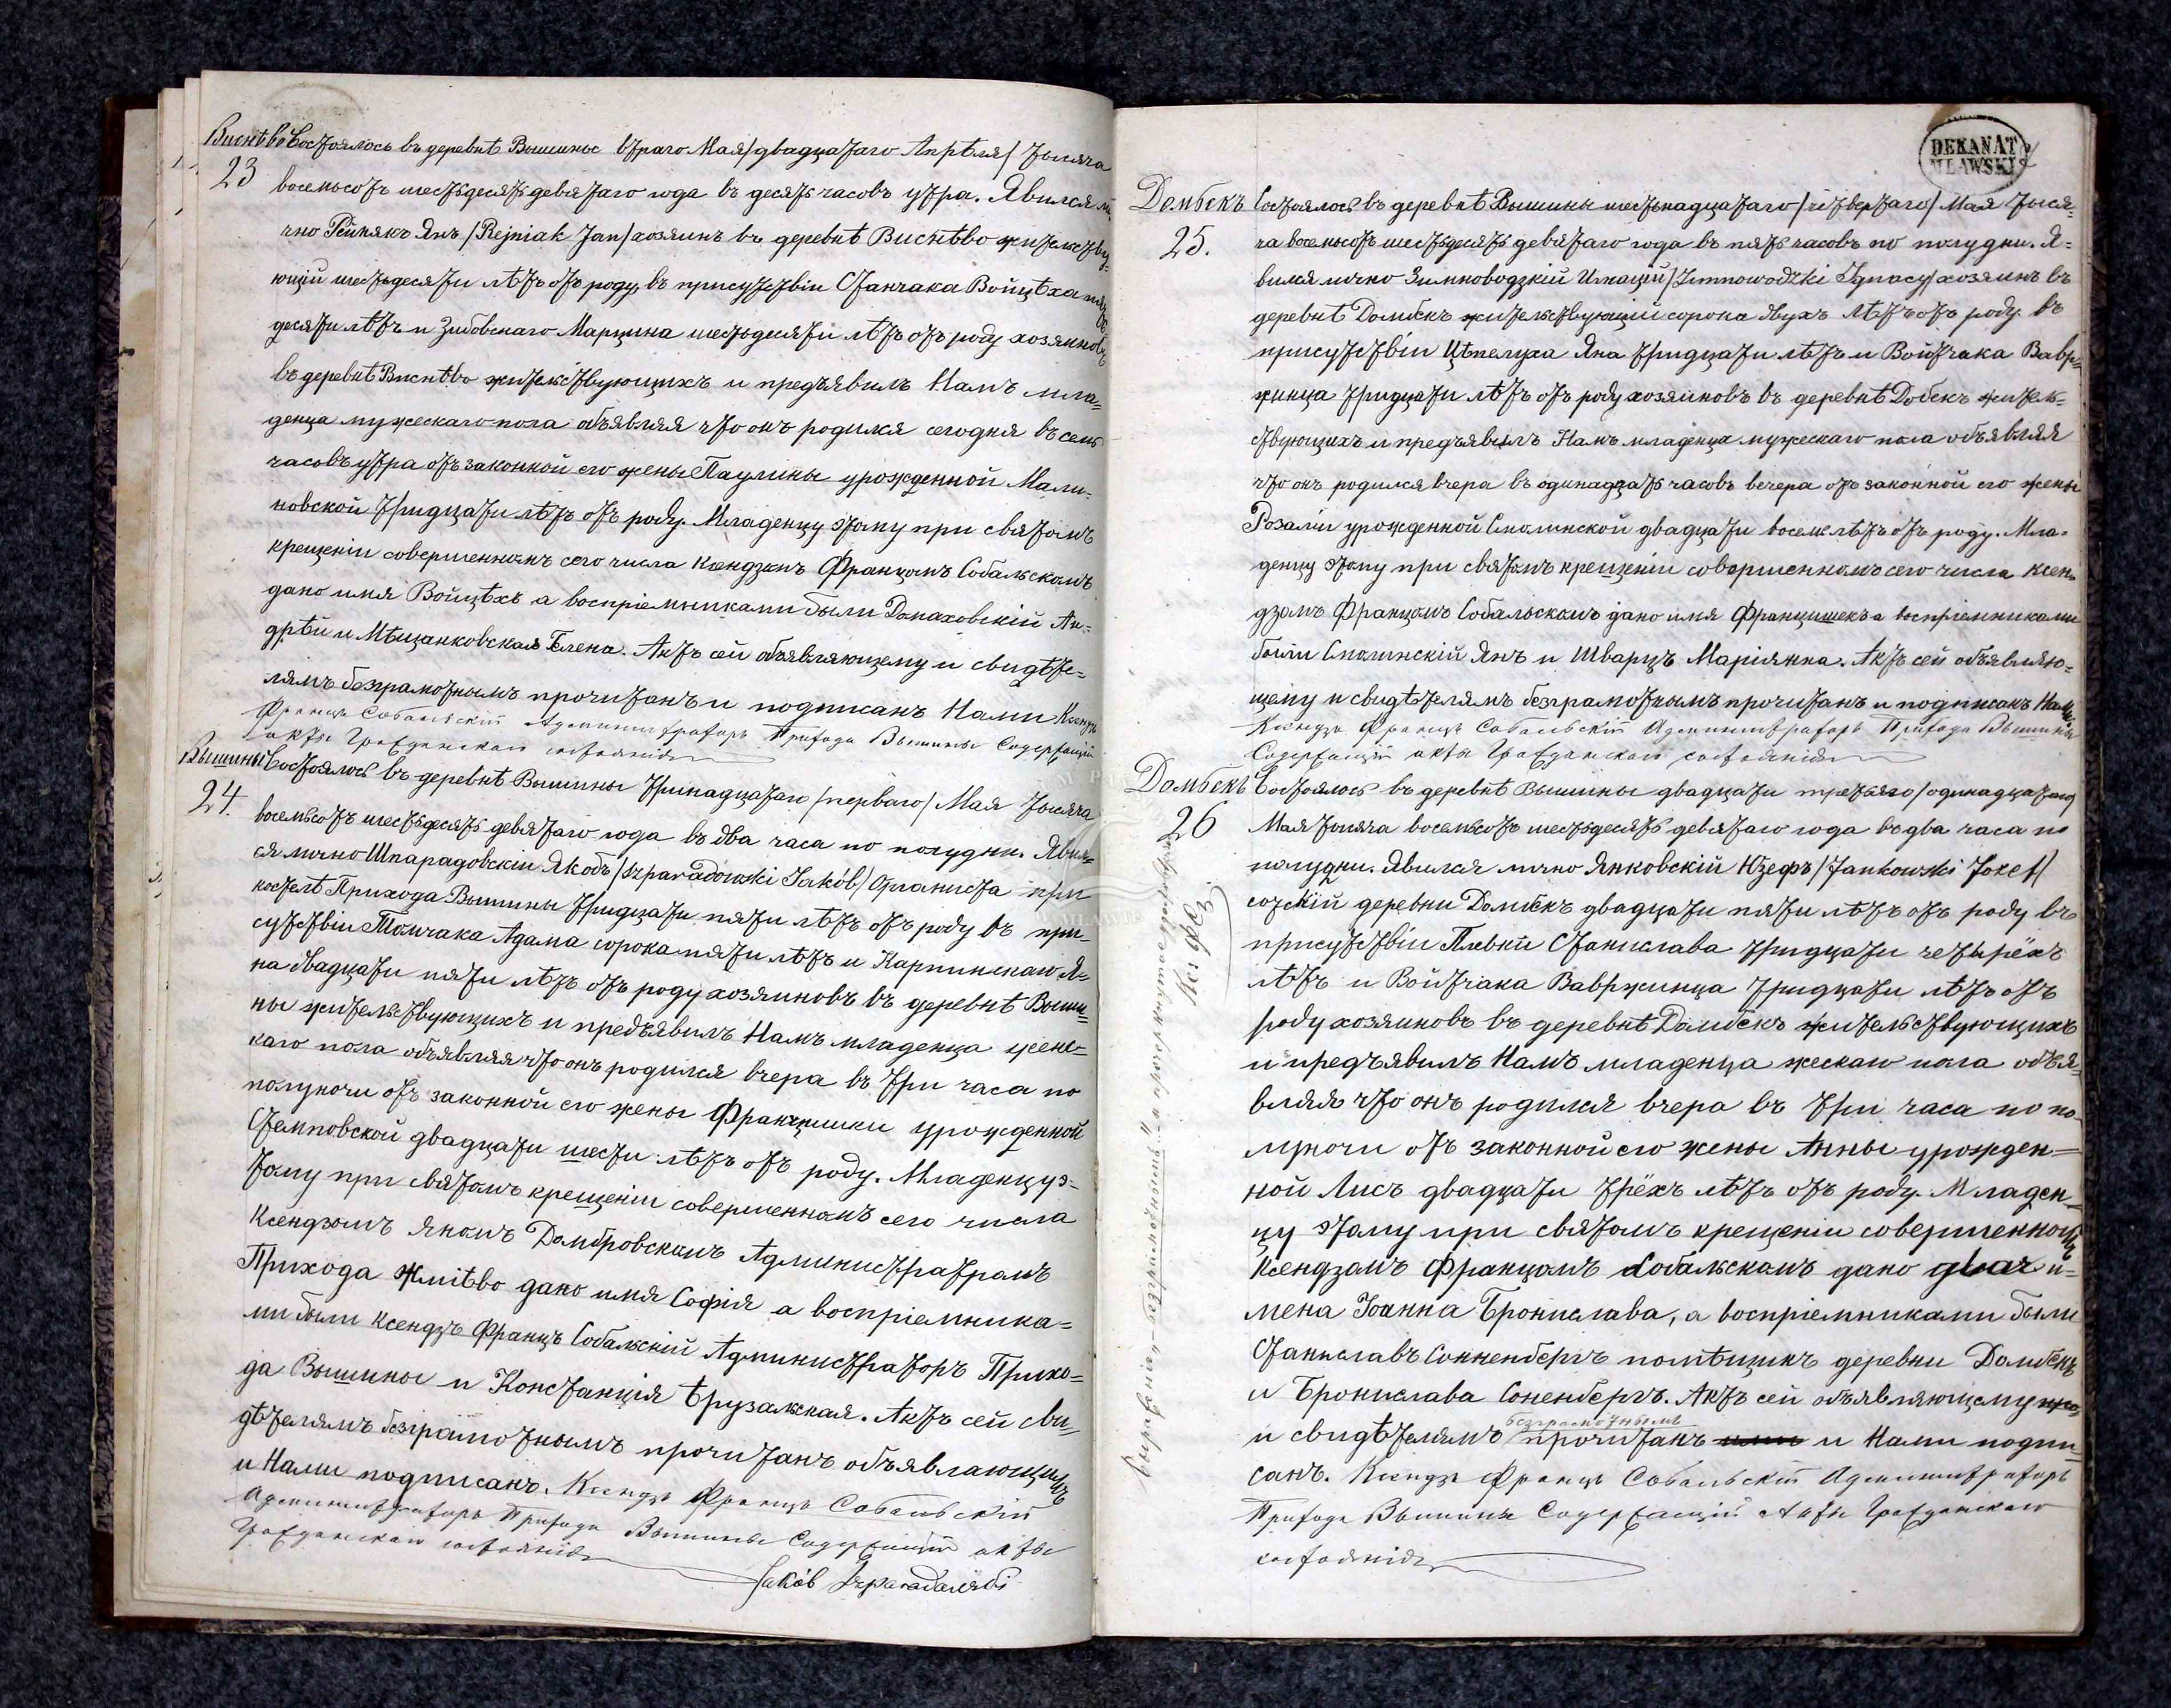 Виснѣво Состоялось въ деревнѣ Вышины втраго Мая /двадцатаго Апрѣля/ тысяча
23 восемьсотъ шестьдесятъ девятаго года въ десять часовъ утра. Явился ли-
чно Рейнякъ Янъ /Rejniak Jan/ хозяинъ въ деревнѣ Виснѣво жительству-
ющій шестьдесяти лѣтъ отъ роду, въ присутствіи Станчака Войцѣха пять
десяти лѣтъ и Зибовскаго Марцина шестьдесяти лѣтъ отъ роду хозяиновъ
въ деревнѣ Виснѣво жительствующихъ и предъявилъ Намъ мла=
денца мужескаго пола объявляя что онъ родился сегодня въ семь
часовъ утра отъ законной его жены Паулины урожденной Мали-
новской тридцати лѣтъ отъ роду. Младенцу этому при святомъ
крещеніи совершенномъ сего числа Ксендзомъ Францомъ Собальскомъ
дано имя Войцѣхъ а воспріемниками были Домаховскій Ан-
дрѣй и Мѣщанковская Елена. Актъ сей объявляющему и свидѣте=
лямъ безграмотнымъ прочитанъ и подписанъ Нами Ксендзъ
Францъ Собальскій Администраторъ Прихода Вышины Содержащій
акты Гражданскаго состоянія
Вышины Состоялось въ деревнѣ Вышины тринадцатаго /перваго/ Мая тысяча
24. восемьсотъ шестьдесятъ девятаго года въ два часа по полудни. Явил=
ся лично Шпарадовскій Якобъ /Szparadowski Jakób/ Органиста при
костелѣ Прихода Вышины тридцати пяти лѣтъ отъ роду въ при-
сутствіи Томчака Адама сорока пяти лѣтъ и Карпинскаго Я=
на двадцати пяти лѣтъ отъ роду хозяиновъ въ деревнѣ Выши=
ны жительствующихъ и предъявилъ Намъ младенца женс=
каго пола объявляя что онъ родился вчера въ три часа по
полуночи отъ законной его жены Францишки урожденной
Стемповской двадцати шести лѣтъ отъ роду. Младенцу э=
тому при святомъ крещеніи совершенномъ сего числа
Ксендзомъ Яномъ Домбровскомъ Администратромъ
Прихода Жмѣво дано имя Софія а воспріемника=
ми были Ксендзъ Францъ Собальскій Администраторъ Прихо=
да Вышины и Констанція Брузальская. Актъ сей сви=
дѣтелямъ безграмотнымъ прочитанъ объявляющимъ
и Нами подписанъ. Ксендзъ Францъ Собальскій
Администраторъ Прихода Вышины Содержащій акты
Гражданскаго состоянія
Jakób Szparadowski
DEKANAT
MŁAWSKI
Домбекъ Состоялось въ деревнѣ Вышины шестьнадцатаго /четвертаго/ Мая тыся-
25. ча восемьсотъ шестьдесятъ девятаго года въ пять часовъ по полудни. Я=
вился лично Зимноводзкій Игнацій /Zimnowodzki Ignacy/ хозяинъ въ
деревнѣ Домбекъ жительствующій сорока двухъ лѣтъ отъ роду въ
присутствіи Цѣпелуха Яна тридцати лѣтъ и Войтчака Вавр=
жинца тридцати лѣтъ отъ роду хозяиновъ въ деревнѣ Добекъ жител-
ствующихъ и предъявилъ Намъ младенца мужескаго пола объявляя
что онъ родился вчера въ одинадцать часовъ вечера отъ законной его жены
Розаліи урожденной Смолинской двадцати восемь лѣтъ отъ роду. Мла-
денцу этому при святомъ крещеніи совершенномъ сего числа Ксен-
дзомъ Францомъ Собальскомъ дано имя Францишекъ а воспріемниками
были Смолинскій Янъ и Шварцъ Маріянна. Актъ сей объявляю=
щему и свидѣтелямъ безграмотнымъ прочитанъ и подписанъ Нами
Ксендзъ Францъ Собальскій Администраторъ Прихода Вышины
Содержащій акты Гражданскаго состоянія
Домбекъ Состоялось въ деревнѣ Вышины двадцати третьяго /одинадцатаго/
26 Мая тысяча восемьсотъ шестьдесятъ девятаго года въ два часа по
полудни. Явился лично Янковскій Юзефъ /Jankowski Jozef/
сотскій деревни Домбекъ двадцати пяти лѣтъ отъ роду въ
присутствіи Плевки Станислава тридцати четырёхъ
лѣтъ и Войтчака Вавржинца тридцати лѣтъ отъ
роду хозяиновъ въ деревнѣ Домбекъ жительствующихъ
и предъявилъ Намъ младенца жескаго пола объя=
вляя что онъ родился вчера въ три часа по по-
луночи отъ законной его жены Анны урожден=
ной Лисъ двадцати трёхъ лѣтъ отъ роду. Младен-
цу этому при святомъ крещеніи совершенномъ
Ксендзомъ Францомъ Собальскомъ дано двая и=
мена Іоанна Бронислава, а воспріемниками были
Станиславъ Сонненбергъ помѣщикъ деревни Домбекъ
и Бронислава Соненбергъ. Актъ сей объявляющему
безграмотнымъ
и свидѣтелямъ прочитанъ и Нами подпи-
санъ. Ксендзъ Францъ Собальскій Администраторъ
Прихода Вышины Содержащій Акты Гражданскаго
состоянія